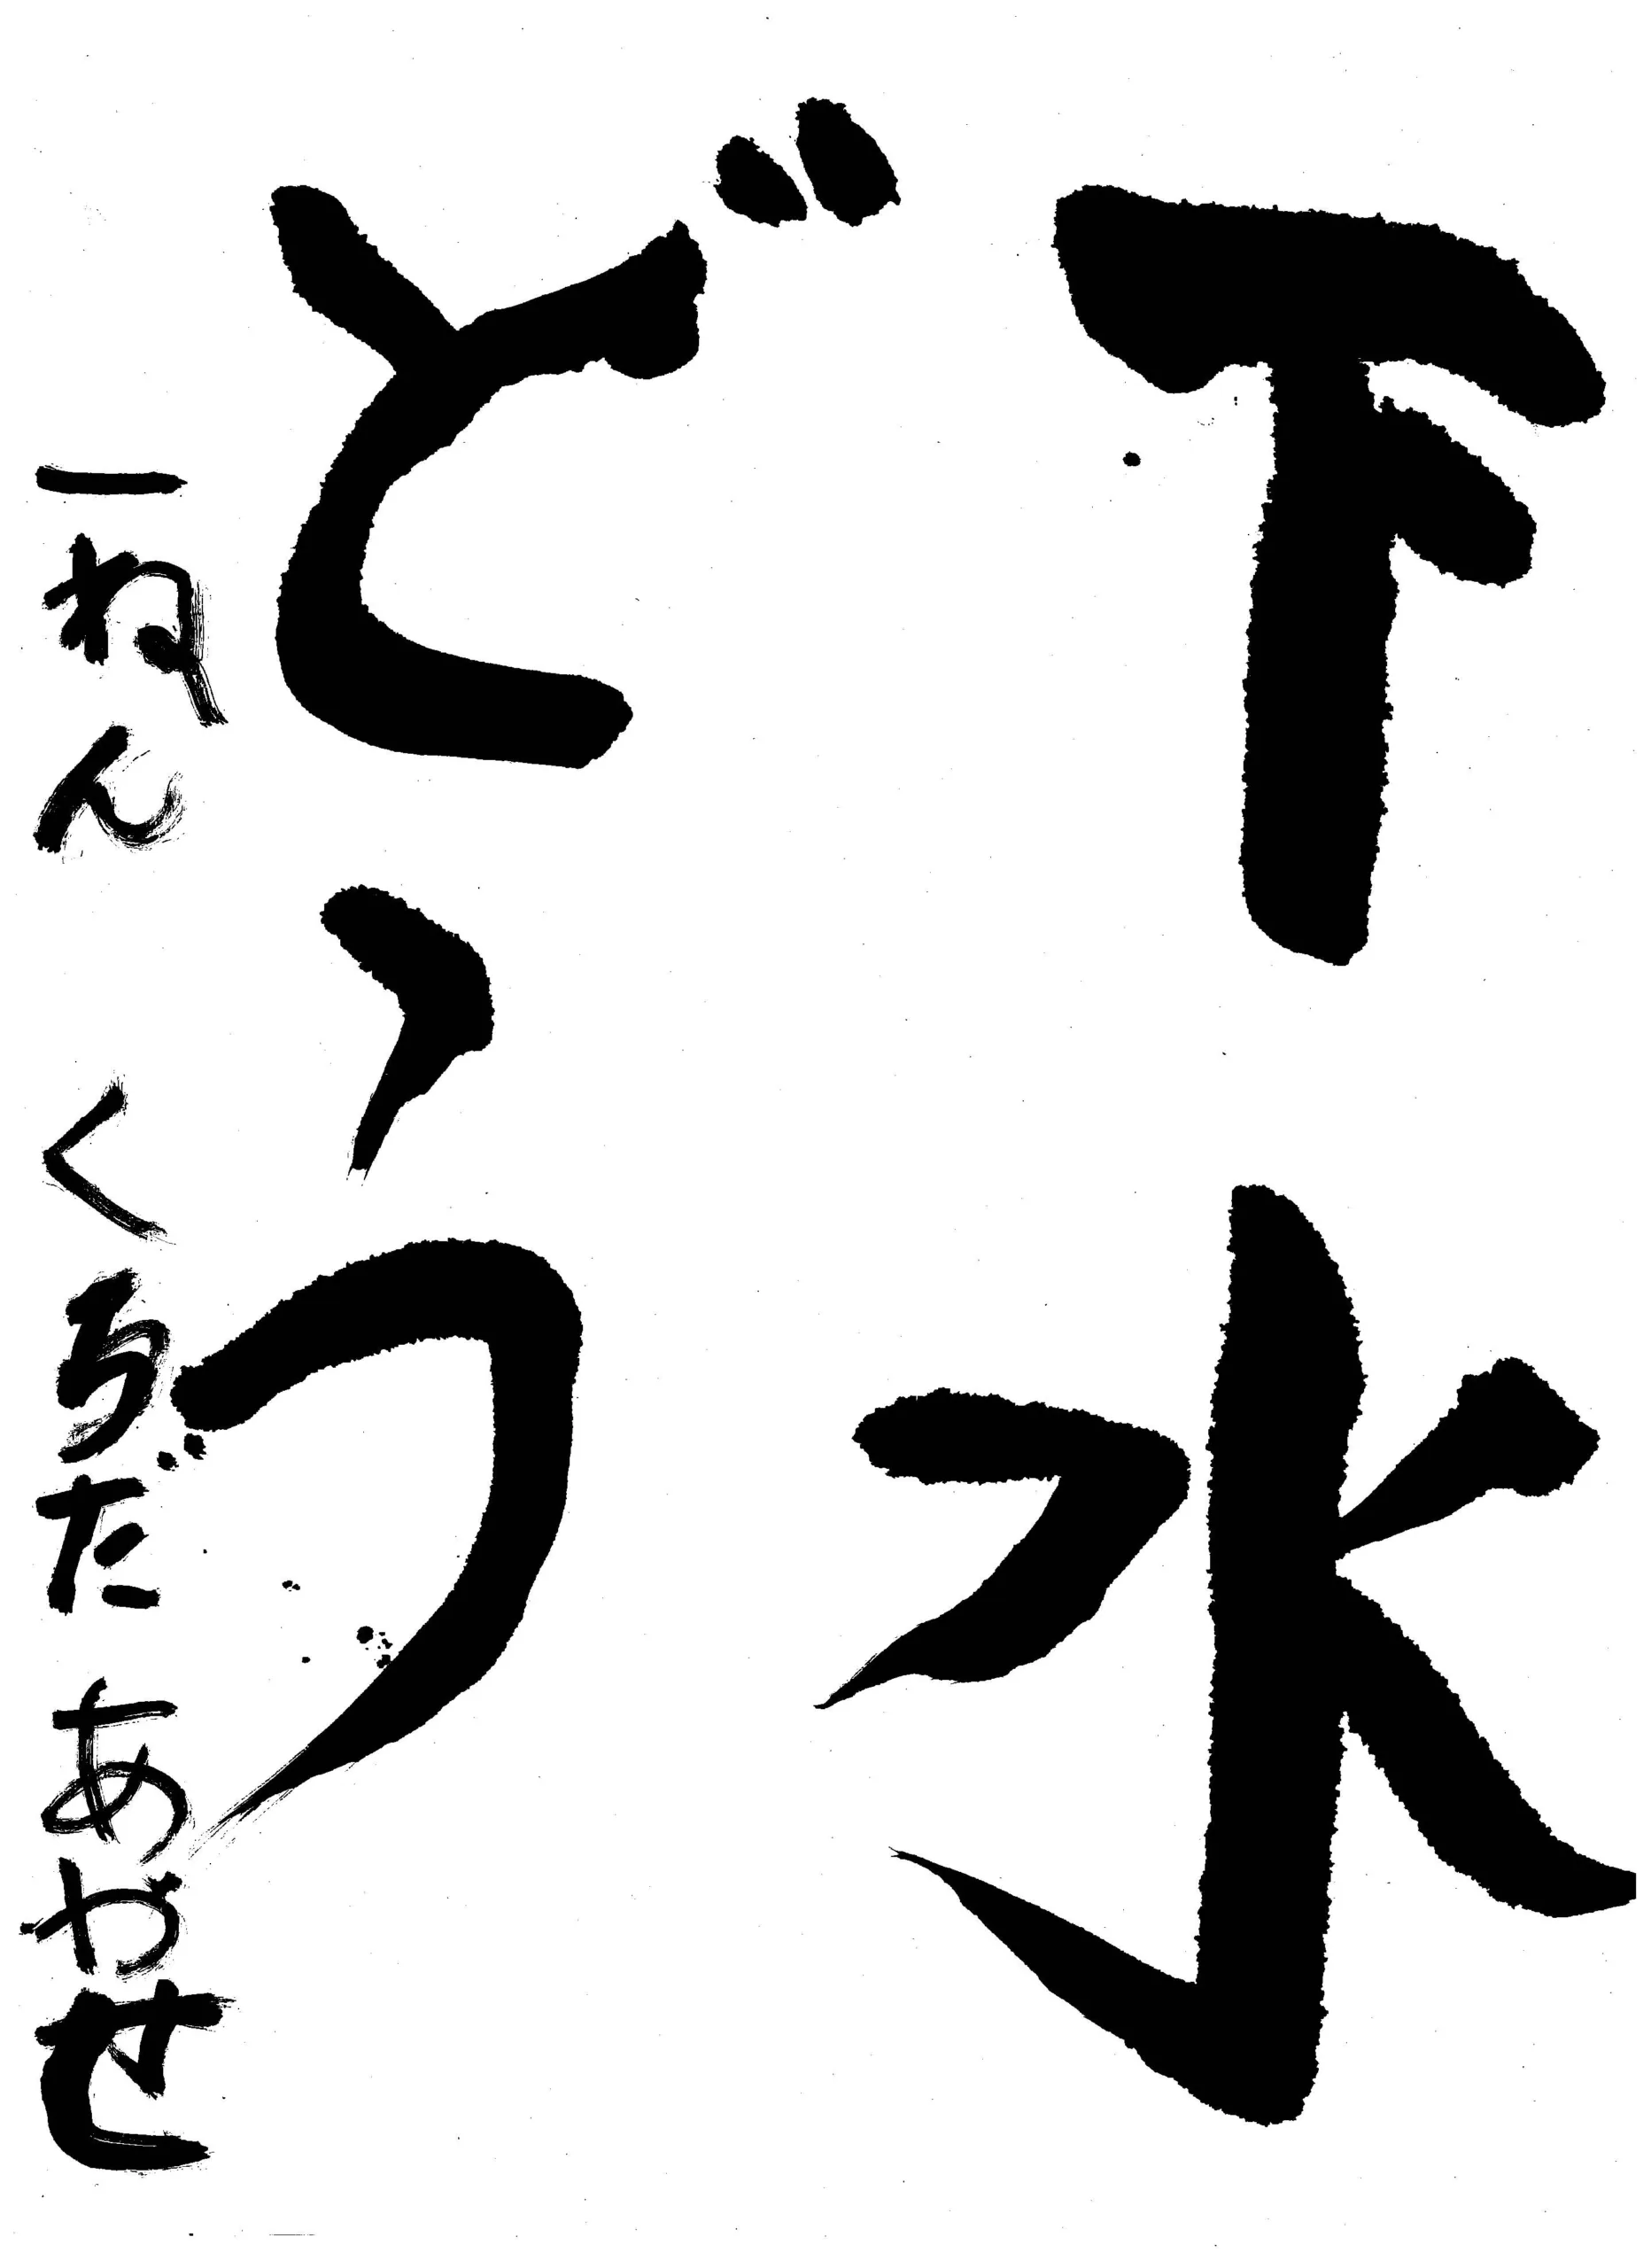 下水
どう
一ねん くらだ あやせ